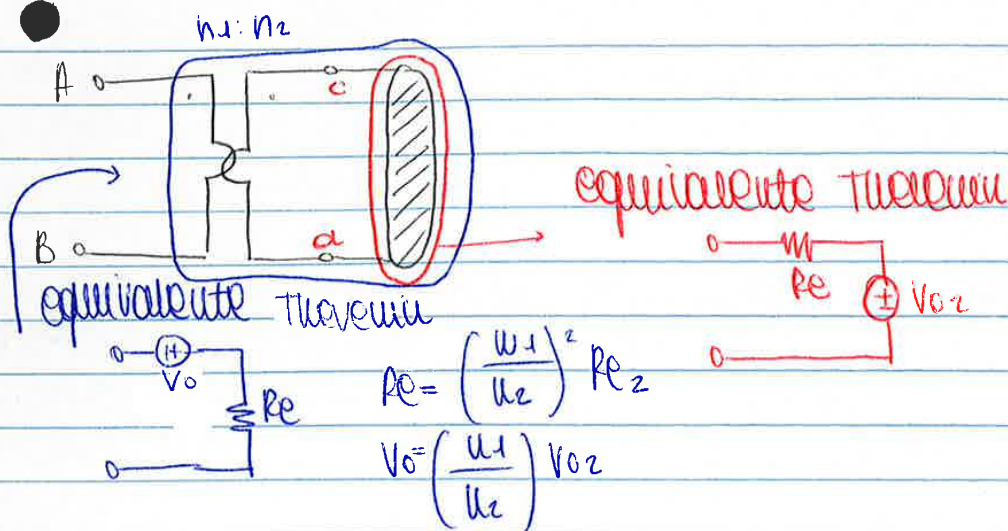 n1:n2
A
c
equivalente Thevenin
B
d
Re
Vo2
equivalente Thevenin
Vo
Re
Re = (n1/n2)² Re2
Vo = (n1/n2) Vo2